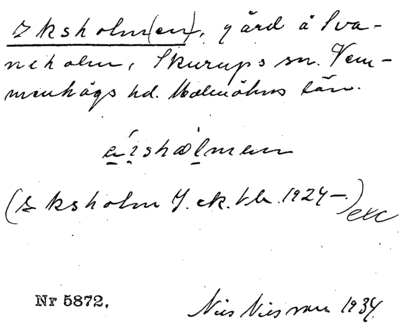 Eksholm(en), gård å Sva-
neholm, Skurups sn. Vem-
menhögs hd. Malmöhus län.
(Eksholm J. ek. kbl. 1924–) exc
Nr 5872.
Nils Nilsson 1934.